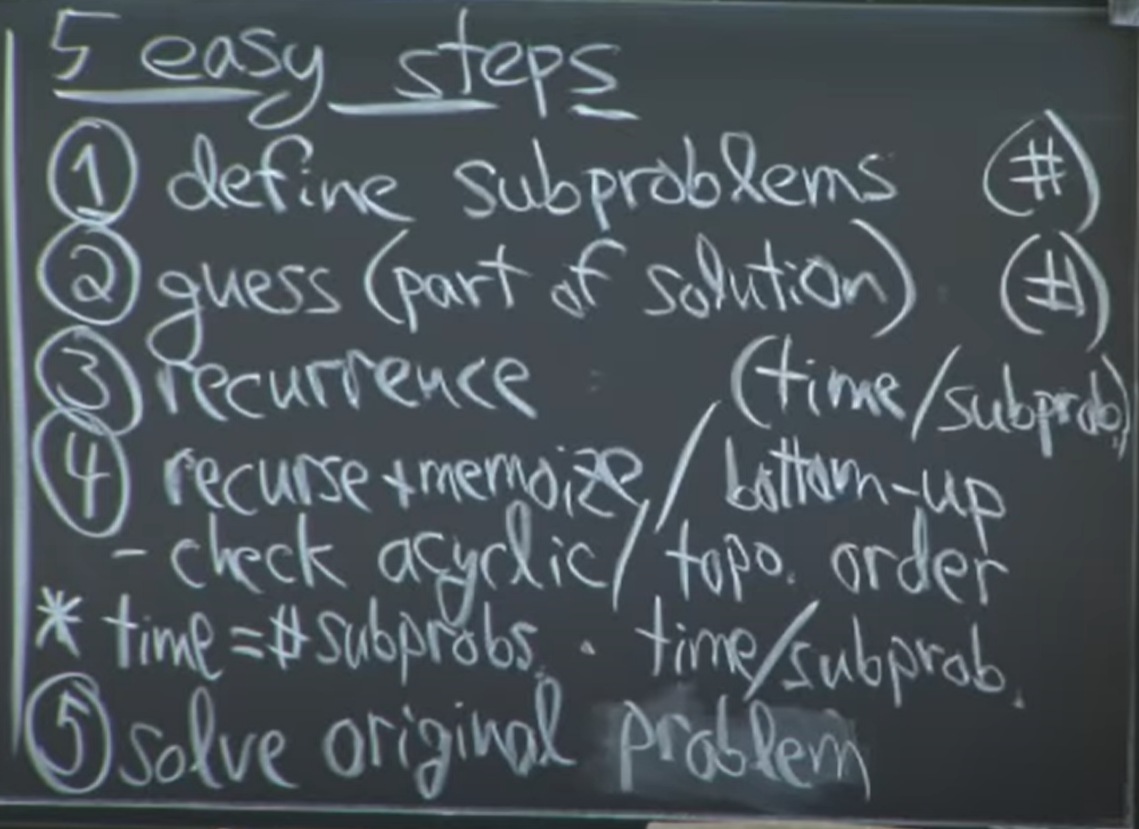 5 easy steps
① define subproblems (#)
② guess (part of solution) (#)
③ recurrence (time/subprob)
④ recurse+memoize / bottom-up
- check acyclic/ topo. order
* time = # subprobs. · time/subprob.
⑤ solve original problem